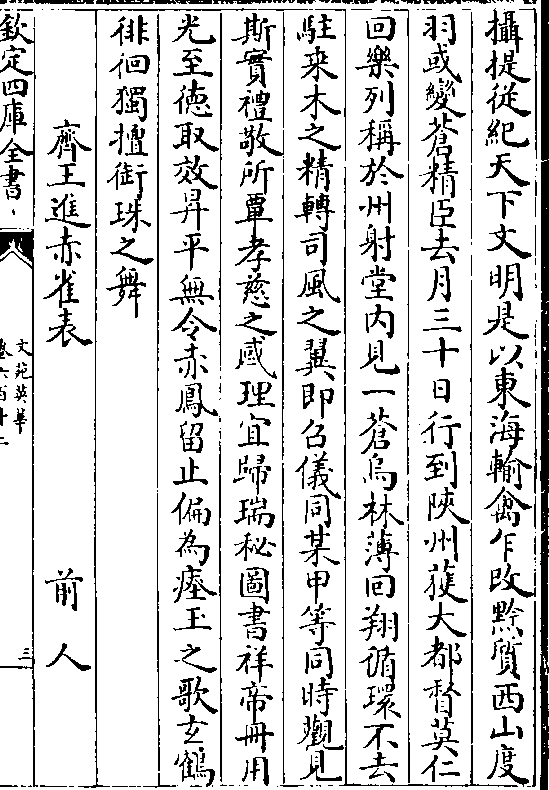 攝提從紀天下文明是以東海輸禽乍改黔質西山度
羽或變蒼精臣去月三十日行到陜州獲大都督莫仁
回樂列稱於州射堂内見一蒼烏林薄回翔循環不去
駐来木之精轉司風之翼即召儀同某甲等同時觀見
斯實禮敬所覃孝慈之感理宜歸瑞秘圖書祥帝冊用
光至德取效昇平無令赤鳳留止偏為瘞玉之歌玄鶴
徘徊獨擅銜珠之舞
齊王進赤雀表 前人
欽定四庫全書
文苑英華
卷六百十二
三